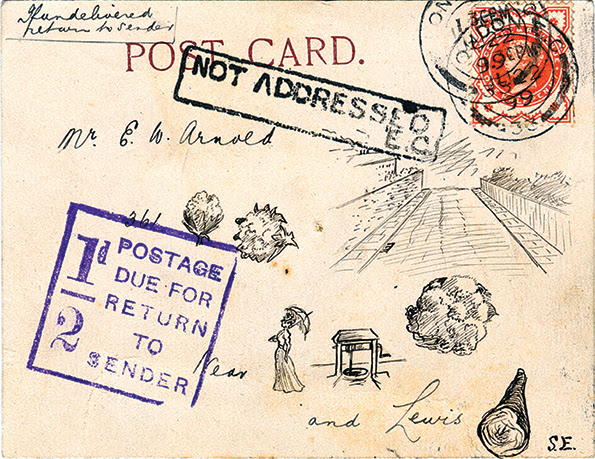 If undelivered
return to sender
POST CARD.
NOT ADDRESSED
E.C
Mr. E. W. Arnold
361
1d/2
POSTAGE
DUE FOR
RETURN
TO
SENDER
Near
and Lewis
S.E.